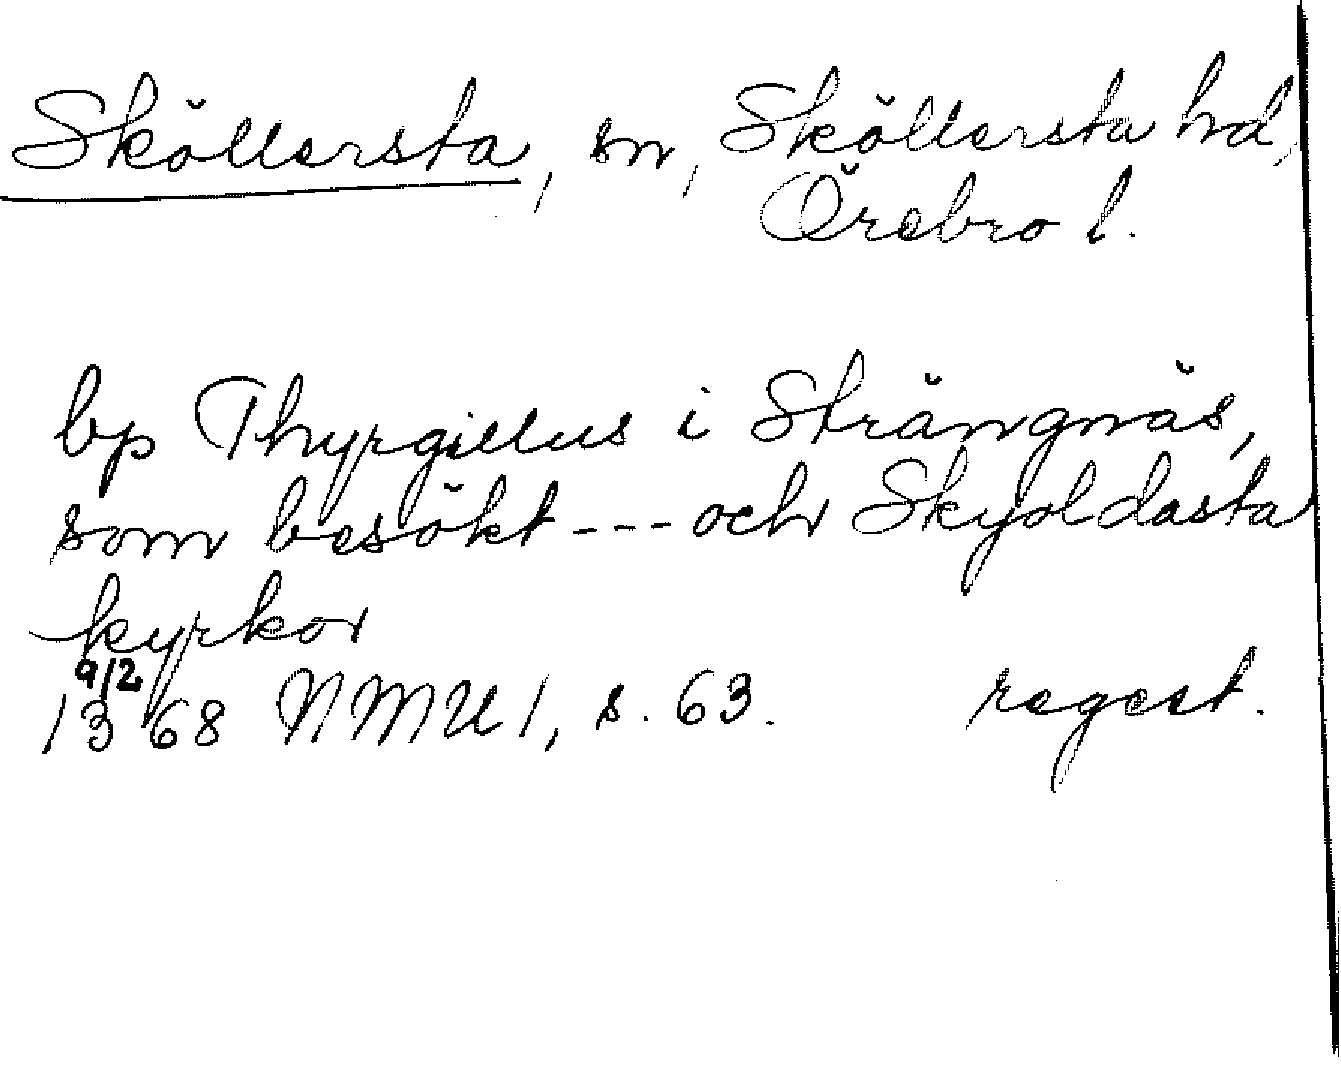 Sköllersta, sn, Sköllersta hd,
Örebro l.
bp Thyrgillus i Strängnäs,
som besökt --- och Skyoldasta
kyrkor
9/2
1368 NMU 1, s. 63. regest.